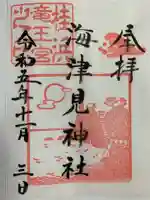 奉拝
海津見神社
桂浜
竜王宮
令和五年十一月三日